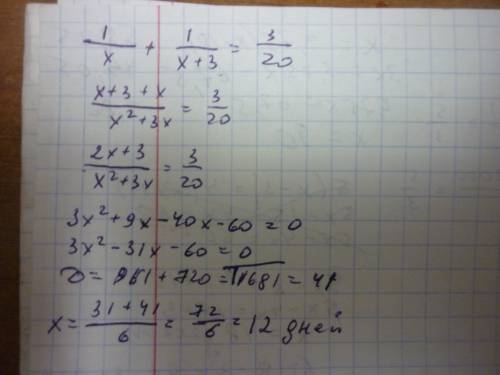 1/x + 1/(x+3) = 3/20
(x+3+x)/(x²+3x) = 3/20
(2x+3)/(x²+3x) = 3/20
3x²+9x-40x-60=0
3x²-31x-60=0
D= 961+720=√1681=41
x= (31+41)/6 = 72/6 = 12 дней